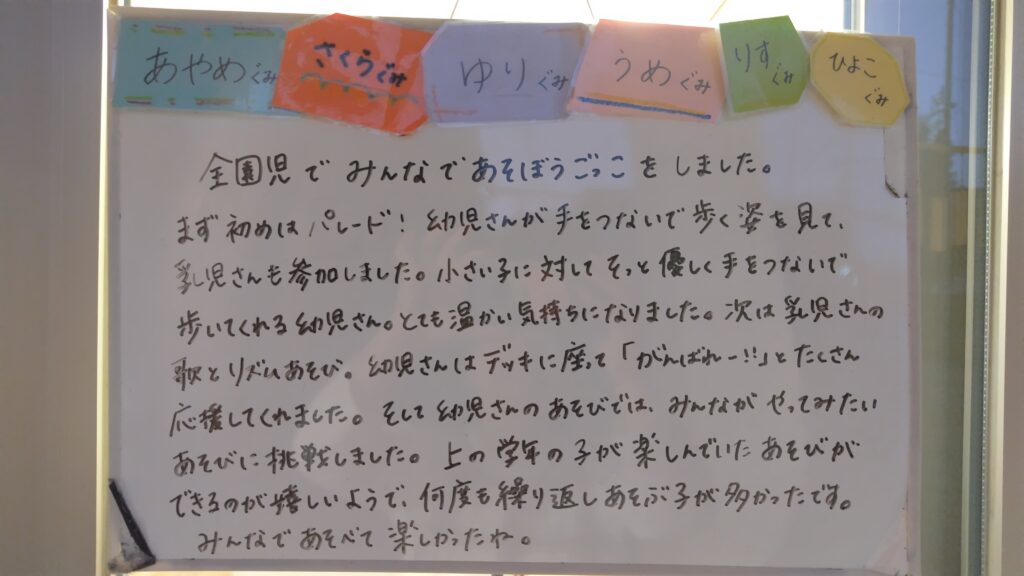 あやめぐみ さくらぐみ ゆりぐみ うめぐみ りすぐみ ひよこぐみ
全園児でみんなであそぼうごっこをしました。
まず初めはパレード！幼児さんが手をつないで歩く姿を見て、
乳児さんも参加しました。小さい子に対してそっと優しく手をつないで
歩いてくれる幼児さん。とても温かい気持ちになりました。次は乳児さんの
歌とリズムあそび。幼児さんはデッキに座って「がんばれー!!」とたくさん
応援してくれました。そして幼児さんのあそびでは、みんながやってみたい
あそびに挑戦しました。上の学年の子が楽しんでいたあそびが
できるのが嬉しいようで、何度も繰り返しあそぶ子が多かったです。
みんなであそべて楽しかったね。